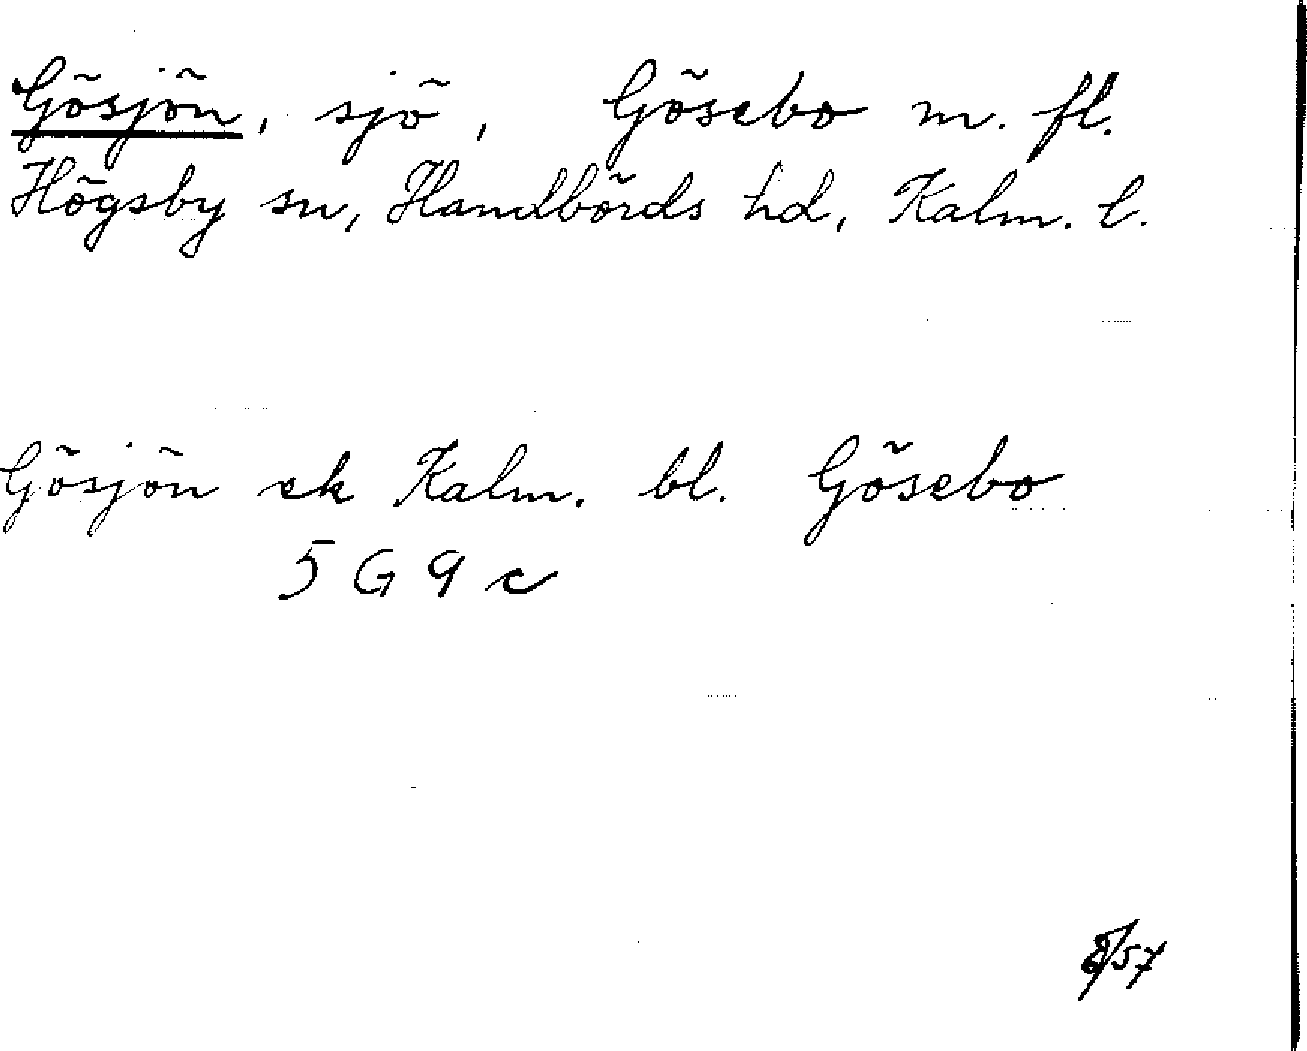 Gösjön, sjö, Gösebo m. fl.
Högsby sn, Handbörds hd, Kalm. l.
Gösjön ek Kalm. bl. Gösebo
5 G 9 c
8/57